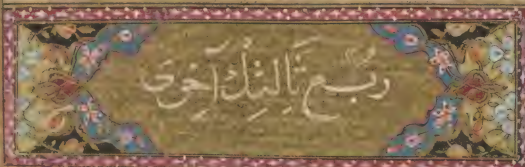 ربع ثَالِثِك آخِرى